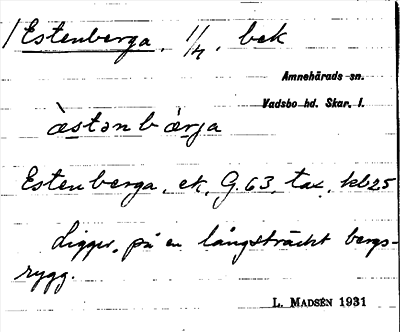 Estenberga, 1/4, bek
Amnehärads sn.
Vadsbo hd. Skar. l.
àstǝnbàrja
Estenberga, ek. G 63, tax. kb 25
Ligger på en långsträckt bergs-
rygg.
L. MADSÉN 1931